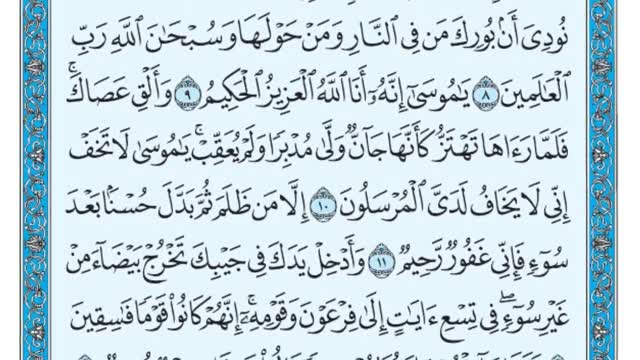 نُودِىَ أَنۢ بُورِكَ مَن فِى ٱلنَّارِ وَمَنْ حَوْلَهَا وَسُبْحَٰنَ ٱللَّهِ رَبِّ
ٱلْعَٰلَمِينَ ٨ يَٰمُوسَىٰٓ إِنَّهُۥٓ أَنَا ٱللَّهُ ٱلْعَزِيزُ ٱلْحَكِيمُ ٩ وَأَلْقِ عَصَاكَۚ
فَلَمَّا رَءَاهَا تَهْتَزُّ كَأَنَّهَا جَآنٌّ وَلَّىٰ مُدْبِرًا وَلَمْ يُعَقِّبْۚ يَٰمُوسَىٰ لَا تَخَفْ
إِنِّى لَا يَخَافُ لَدَىَّ ٱلْمُرْسَلُونَ ١٠ إِلَّا مَن ظَلَمَ ثُمَّ بَدَّلَ حُسْنًۢا بَعْدَ
سُوٓءٍ فَإِنِّى غَفُورٌ رَّحِيمٌ ١١ وَأَدْخِلْ يَدَكَ فِى جَيْبِكَ تَخْرُجْ بَيْضَآءَ مِنْ
غَيْرِ سُوٓءٍۖ فِى تِسْعِ ءَايَٰتٍ إِلَىٰ فِرْعَوْنَ وَقَوْمِهِۦٓۚ إِنَّهُمْ كَانُوا۟ قَوْمًا فَٰسِقِينَ